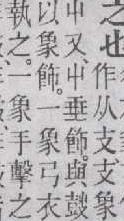 之也
作从支支象
屮又、屮垂飾。與鼓
以象飾。一象弓衣
執之。一象手擊之